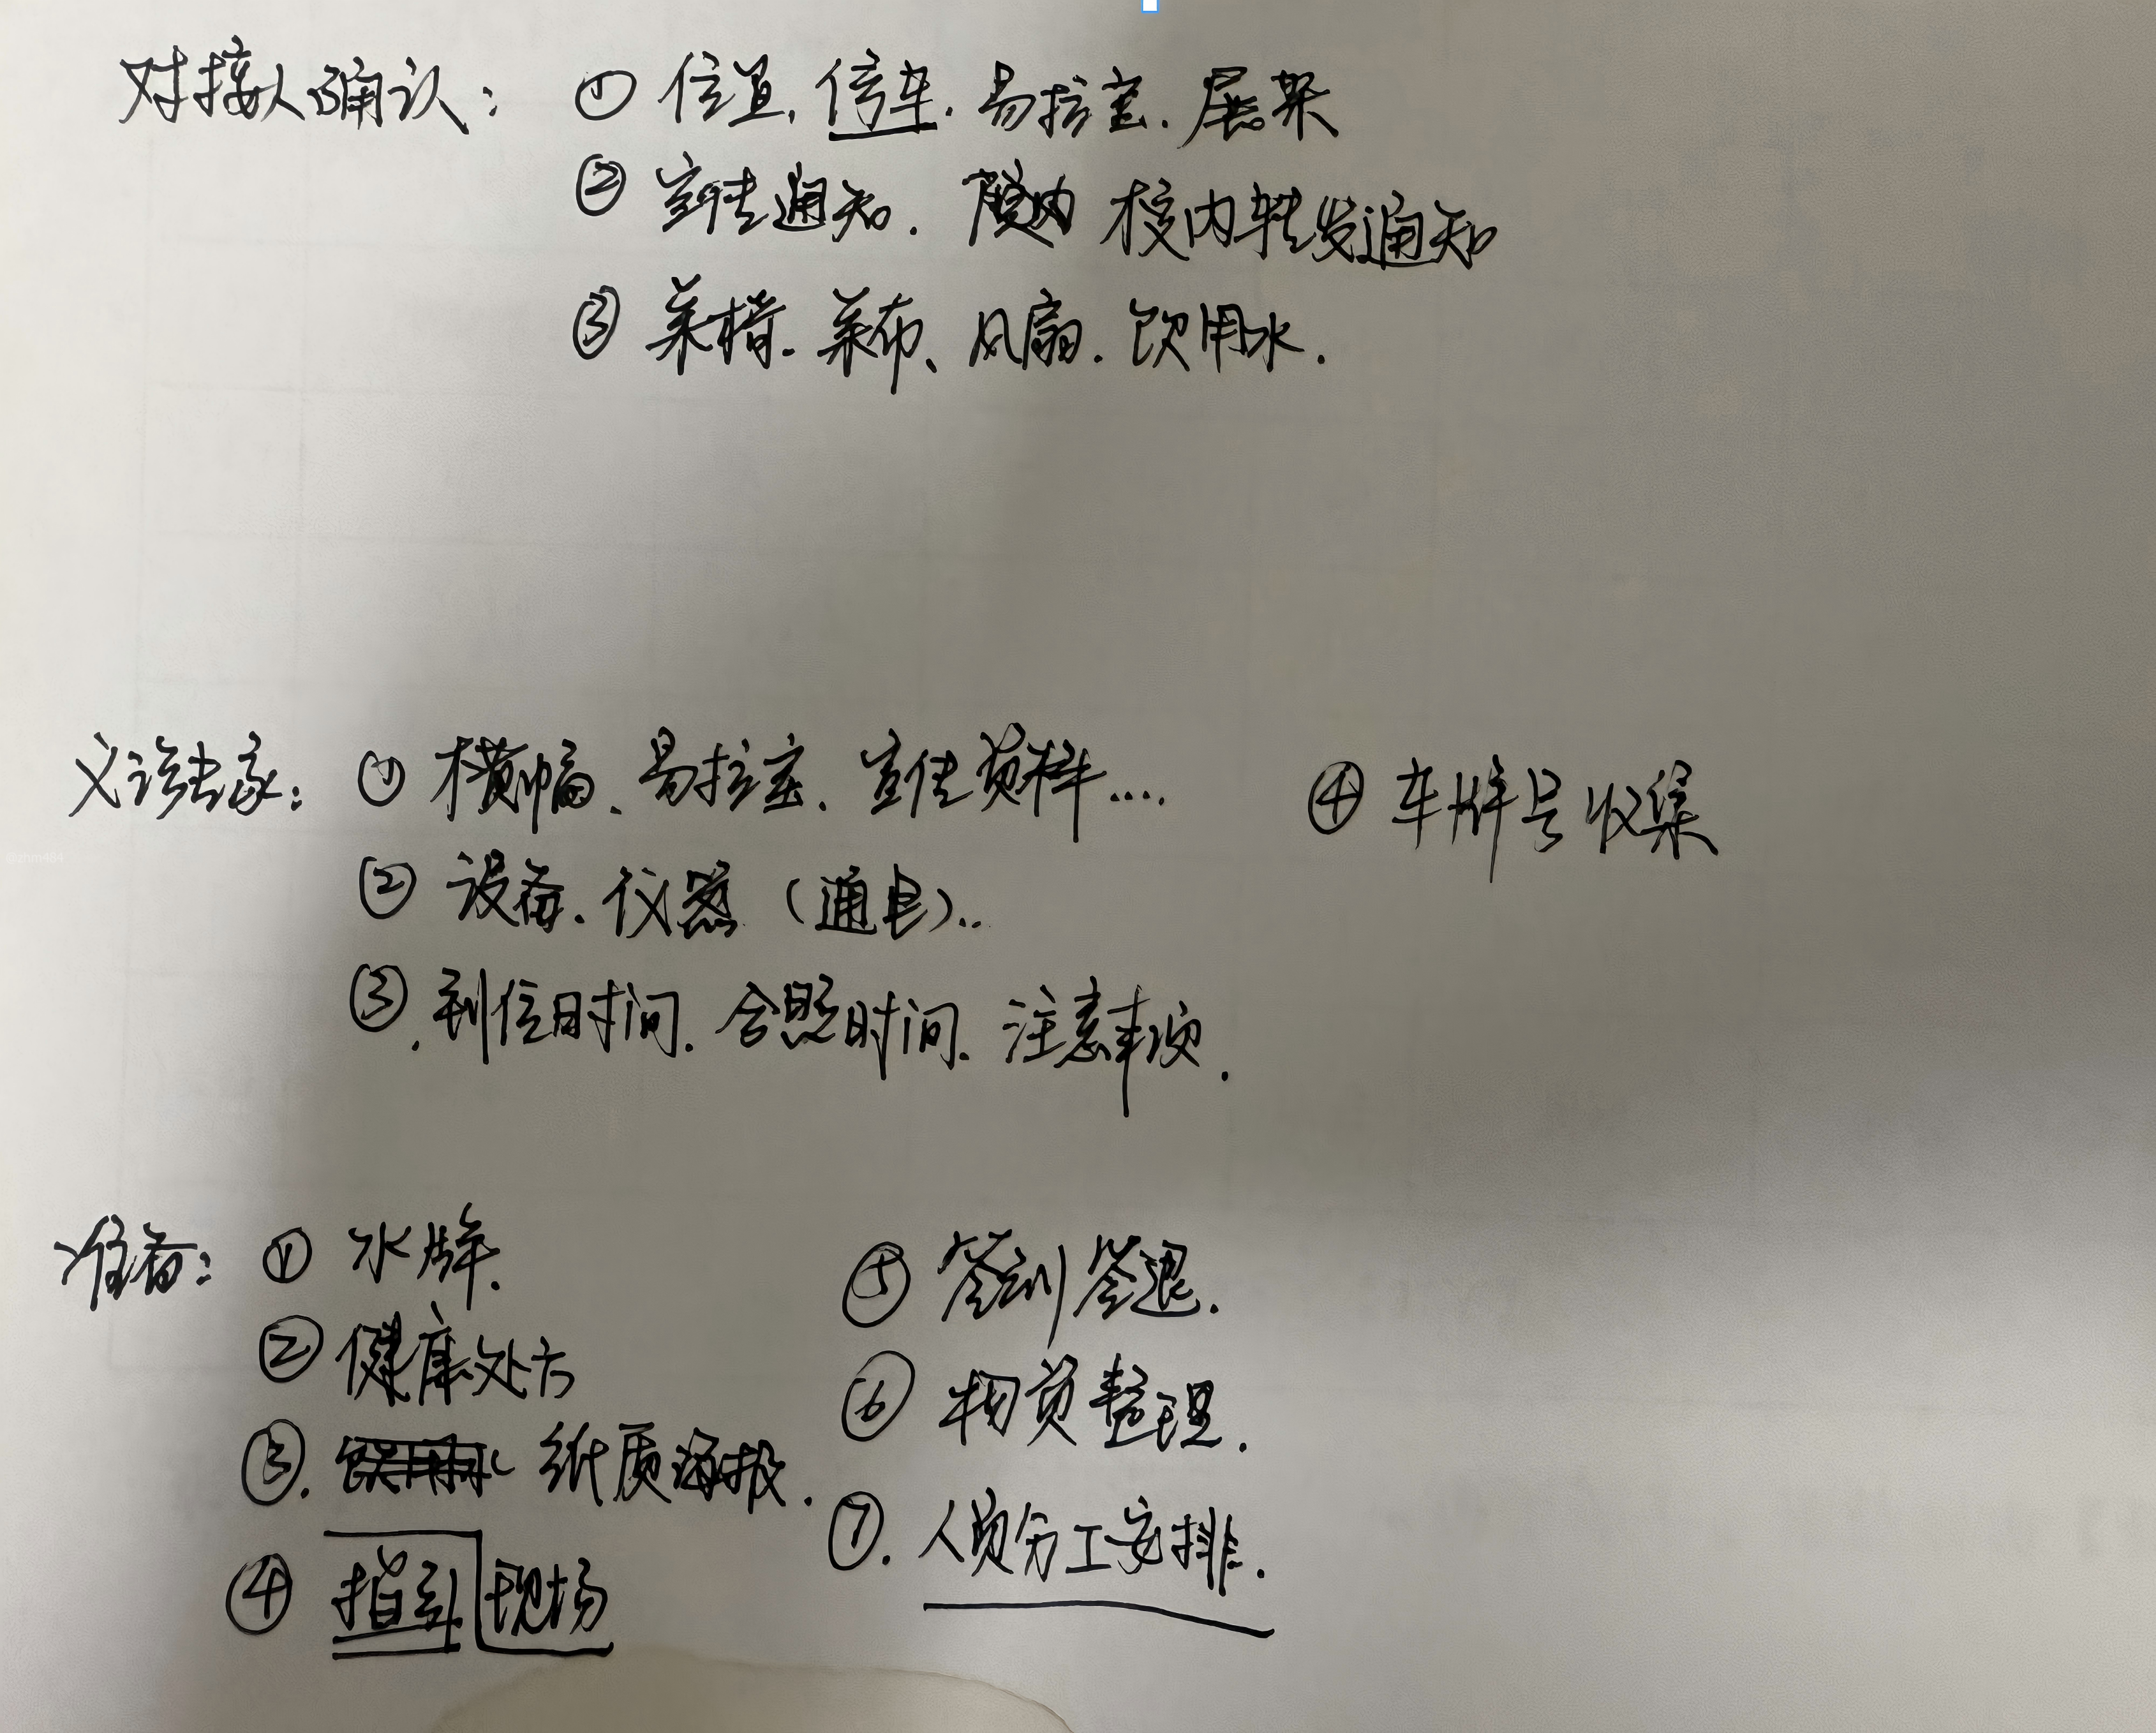 对接人确认：① 位置、停车、易拉宝、展架
② 宣传通知、校内转发通知
③ 桌椅、桌布、风扇、饮用水.
义诊专家：① 横幅、易拉宝、宣传资料....
④ 车牌号收集
② 设备、仪器（通电）..
③.到位时间、合照时间、注意事项.
准备：① 水牌.
② 健康处方
③. 纸质海报.
④ 指引 现场
⑤ 签到签退.
⑥ 物资整理.
⑦. 人员分工安排.
@zhm484